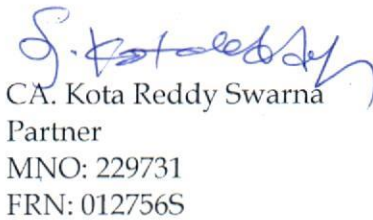 CA. Kota Reddy Swarna
Partner
MNO: 229731
FRN: 012756S